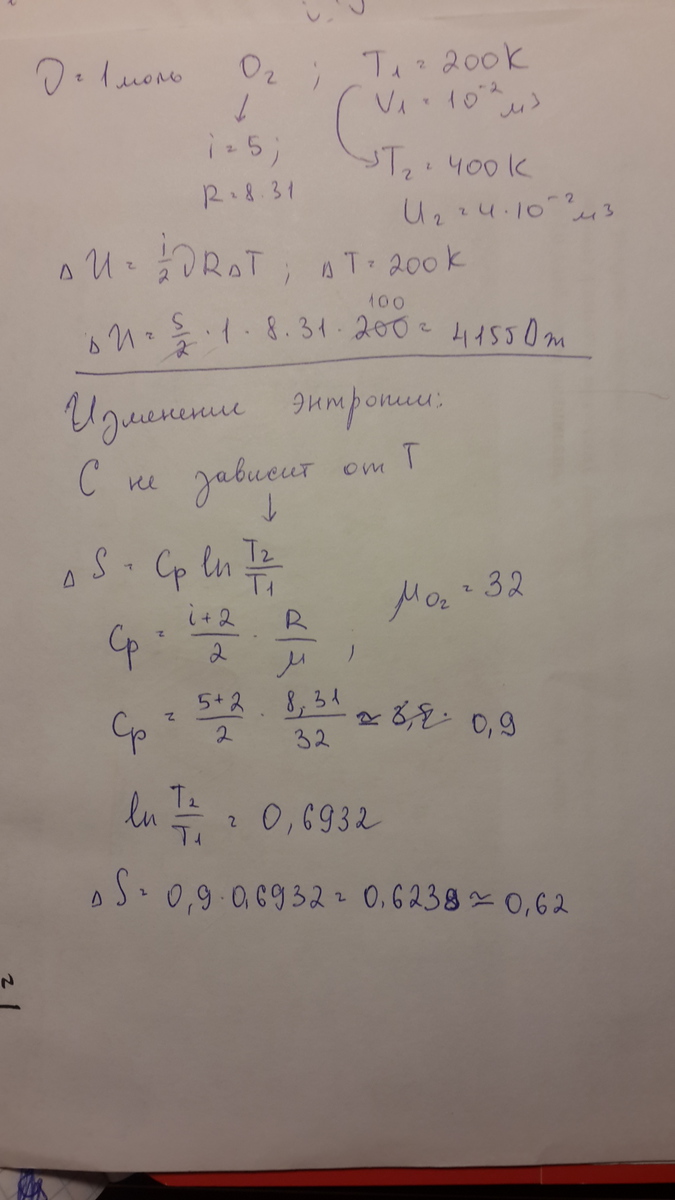 ν = 1 моль O₂ ; T₁ = 200K
V₁ = 10⁻² м³
↓
i = 5 ;
T₂ = 400K
R = 8.31
U₂ = 4·10⁻² м³
Δ U = i/2 ν R Δ T ; Δ T = 200K
100
Δ U = 5/2 · 1 · 8.31 · 200 = 4155 Дж
Изменение энтропии:
C не зависит от T
↓
Δ S = Cp ln T₂/T₁
μO₂ = 32
Cp = i+2/2 · R/μ ;
Cp = 5+2/2 · 8,31/32 ≃ 0,9
ln T₂/T₁ = 0,6932
Δ S = 0,9 · 0,6932 = 0,6238 ≃ 0,62